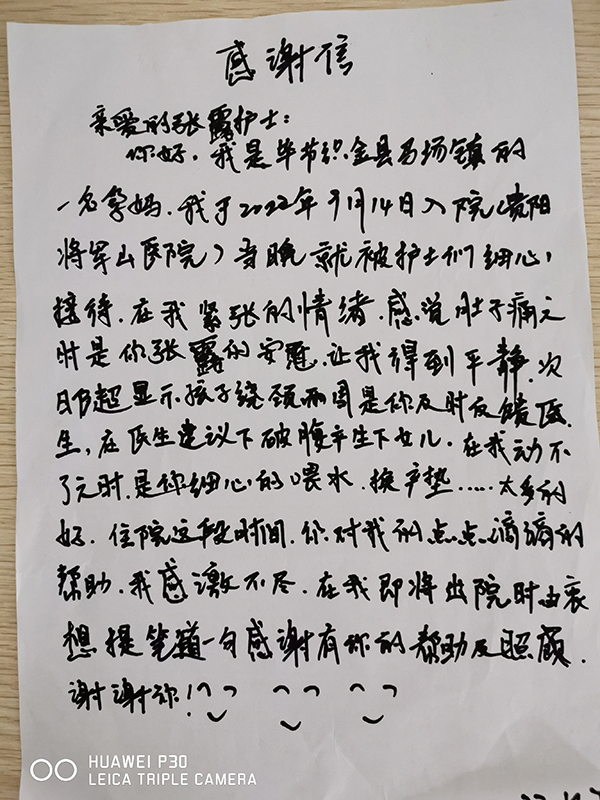 感谢信
亲爱的张露护士:
你好,我是毕节织金县马场镇的
一名孕妈,我于2022年9月14日入院(贵阳
将军山医院)当晚就被护士们细心
接待,在我紧张的情绪,感觉肚子痛之
时是你张露的安慰,让我得到平静,次
日B超显示孩子绕颈两周是你及时反馈医
生,在医生建议下破腹产生下女儿,在我动不
了之时,是你细心的喂水,换产垫……太多的
好,住院这段时间,你对我的点点滴滴的
帮助,我感激不尽,在我即将出院时由衷
想提笔道一句感谢有你的帮助及照顾,
谢谢你!
HUAWEI P30
LEICA TRIPLE CAMERA